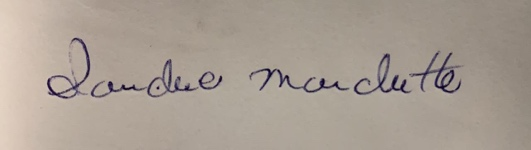 Sandra Marchette